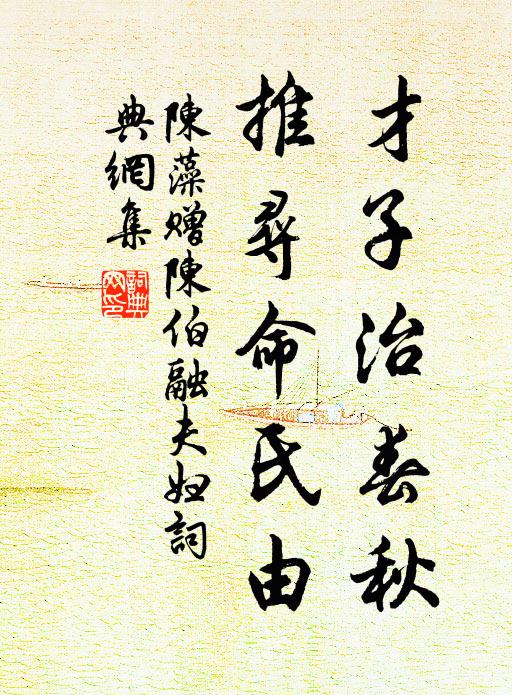 才子治春秋
推尋命氏由
陳藻贈陳伯融夫婦詞
典網集
詞典網印